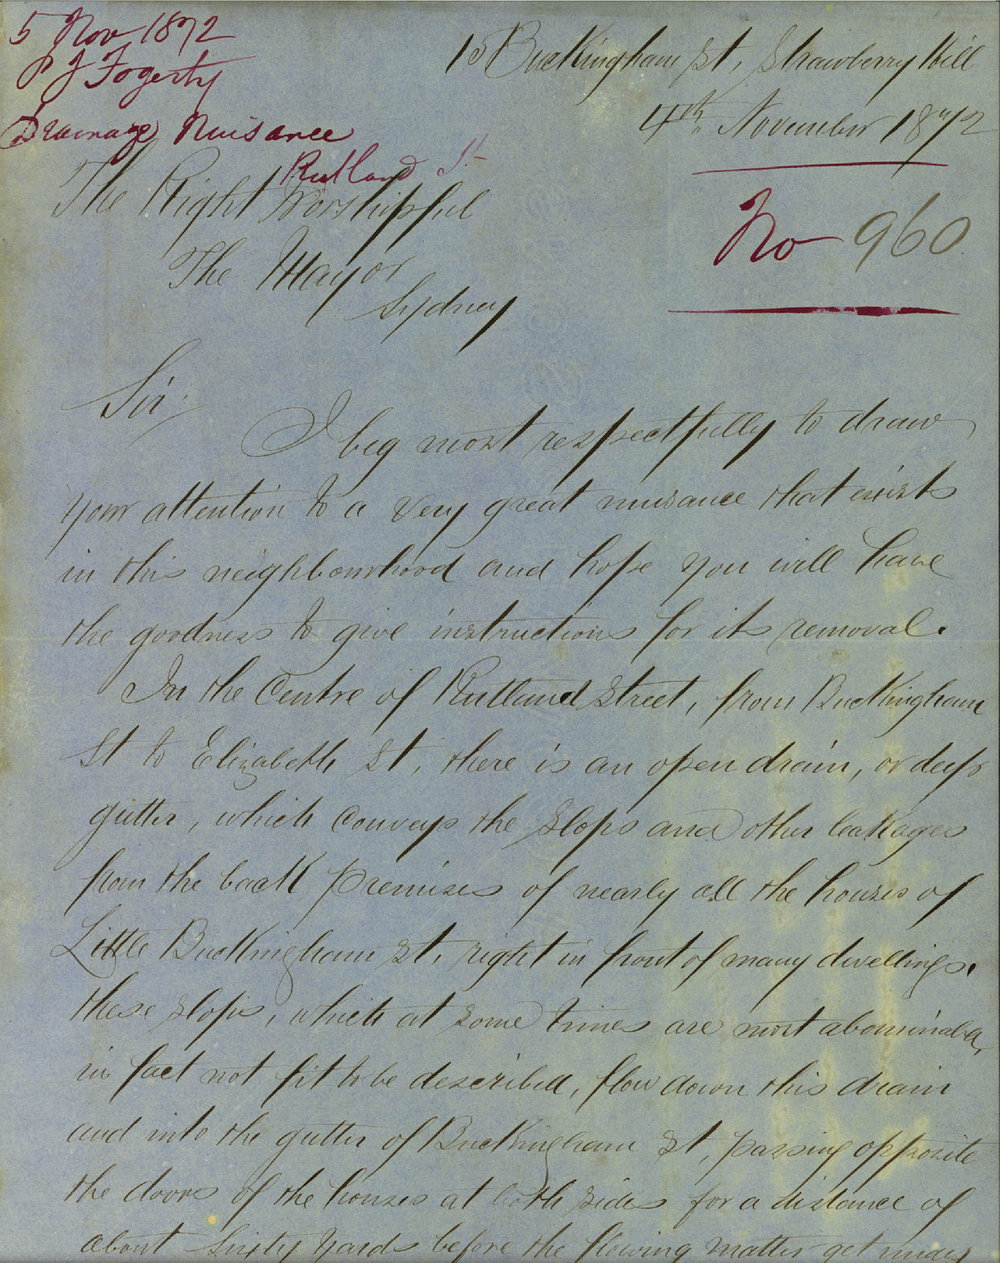 5 Nov 1872
P J Fogerty
Drainage Nuisance
Rutland St
10 Buckingham St, Strawberry Hill
4th November 1872
No 960
The Right Worshipful
The Mayor
Sydney
Sir,
I beg most respectfully to draw
your attention to a very great nuisance that exists
in this neighbourhood and hope you will have
the goodness to give instructions for its removal.
In the Centre of Rutland Street, from Buckingham
St to Elizabeth St, there is an open drain, or deep
gutter, which conveys the slops and other leakages
from the back premises of nearly all the houses of
Little Buckingham St, right in front of many dwellings.
these slops, which at some times are most abominable,
in fact not fit to be described, flow down this drain
and into the gutter of Buckingham St, passing opposite
the doors of the houses at both sides for a distance of
about sixty yards before the flowing matter get under